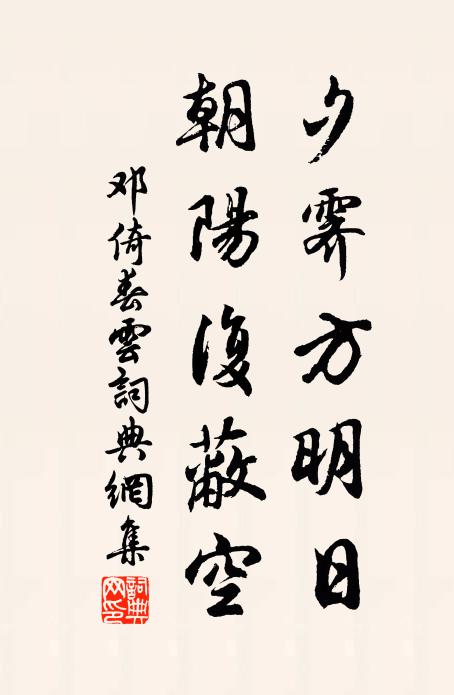 夕霽方明日
朝陽復蔽空
邓倚春雲詞典網集
詞典网印